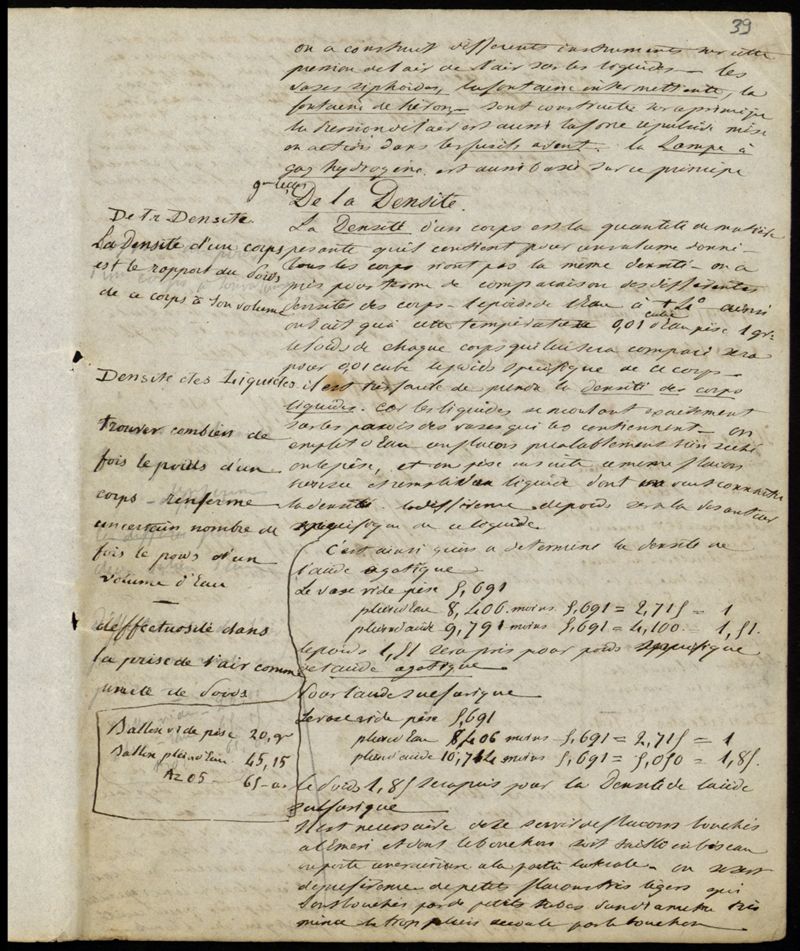 39
on a construit differents instruments sur cette
pression de l'air sur les liquides — les
vases siphoides, la fontaine intermettente, la
fontaine de héron — sont construits sur ce principe
la pression de l'air est aussi la force repulsive mise
en action dans les fusils avent. la Lampe à
gaz hydrogène est aussi basée sur ce principe
De la Densité.
La Densité d'un corps est la quantité de matiere
pesante qu'il contient pour un volume donné —
tous les corps n'ont pas la meme densité — on a
pris pour terme de comparaison des differentes
densités des corps — le poids de l'Eau à + 4° ainsi
on sait qu'a cette temperature 0,01 cube d'Eau pèse 1 gr.
le poids de chaque corps qui lui sera comparé sera
pour 0,01 cube le poids specifique de ce corps —
il est très facile de prendre la densité des corps
liquides. car les liquides se moulant exactement
sur les parois des vases qui les contiennent — on
emplit d'Eau un flacon préalablement bien séché
on le pèse, et on pèse ensuite ce meme flacon
vide et rempli d'un liquide dont on veut connaitre
la densité. la difference de poids sera la pesanteur
specifique de ce liquide
C'est ainsi qu'on a determiné la densité de
l'acide azotique
Le vase vide pèse 5,691
plein d'Eau 8,406 moins 5,691 = 2,715 = 1
plein d'acide 9,791 moins 5,691 = 4,100 = 1,51.
le poids 1,51 sera pris pour poids specifique
de l'acide azotique
Pour l'acide sulfurique
Le vase vide pèse 5,691
plein d'Eau 8,406 moins 5,691 = 2,715 = 1
plein d'acide 10,741 moins 5,691 = 5,050 = 1,85.
le Poids 1,85 sera pris pour la Densité de l'acide
sulfurique
Il est necessaire de se servir de flacons bouchés
a l'Emeri et dont le bouchon soit taillé en biseau
ou porte une rainure a la partie laterale — on se sert
de preference de petits flacons très legers qui
sont bouchés par de petits tubes d'un diametre très
mince le trop plein s'ecoule par le bouchon
De la Densité.
La Densité d'un corps
est le rapport du Poids
de ce corps à son volume
Densité des Liquides
trouver combien de
fois le poids d'un
corps renferme
un certain nombre de
fois le poids d'un
volume d'Eau
déffectuosité dans
la prise de l'air comme
unité de Poids
Ballon vide pèse 20, gr
Ballon plein d'Eau 45,15
Az 05 — 65